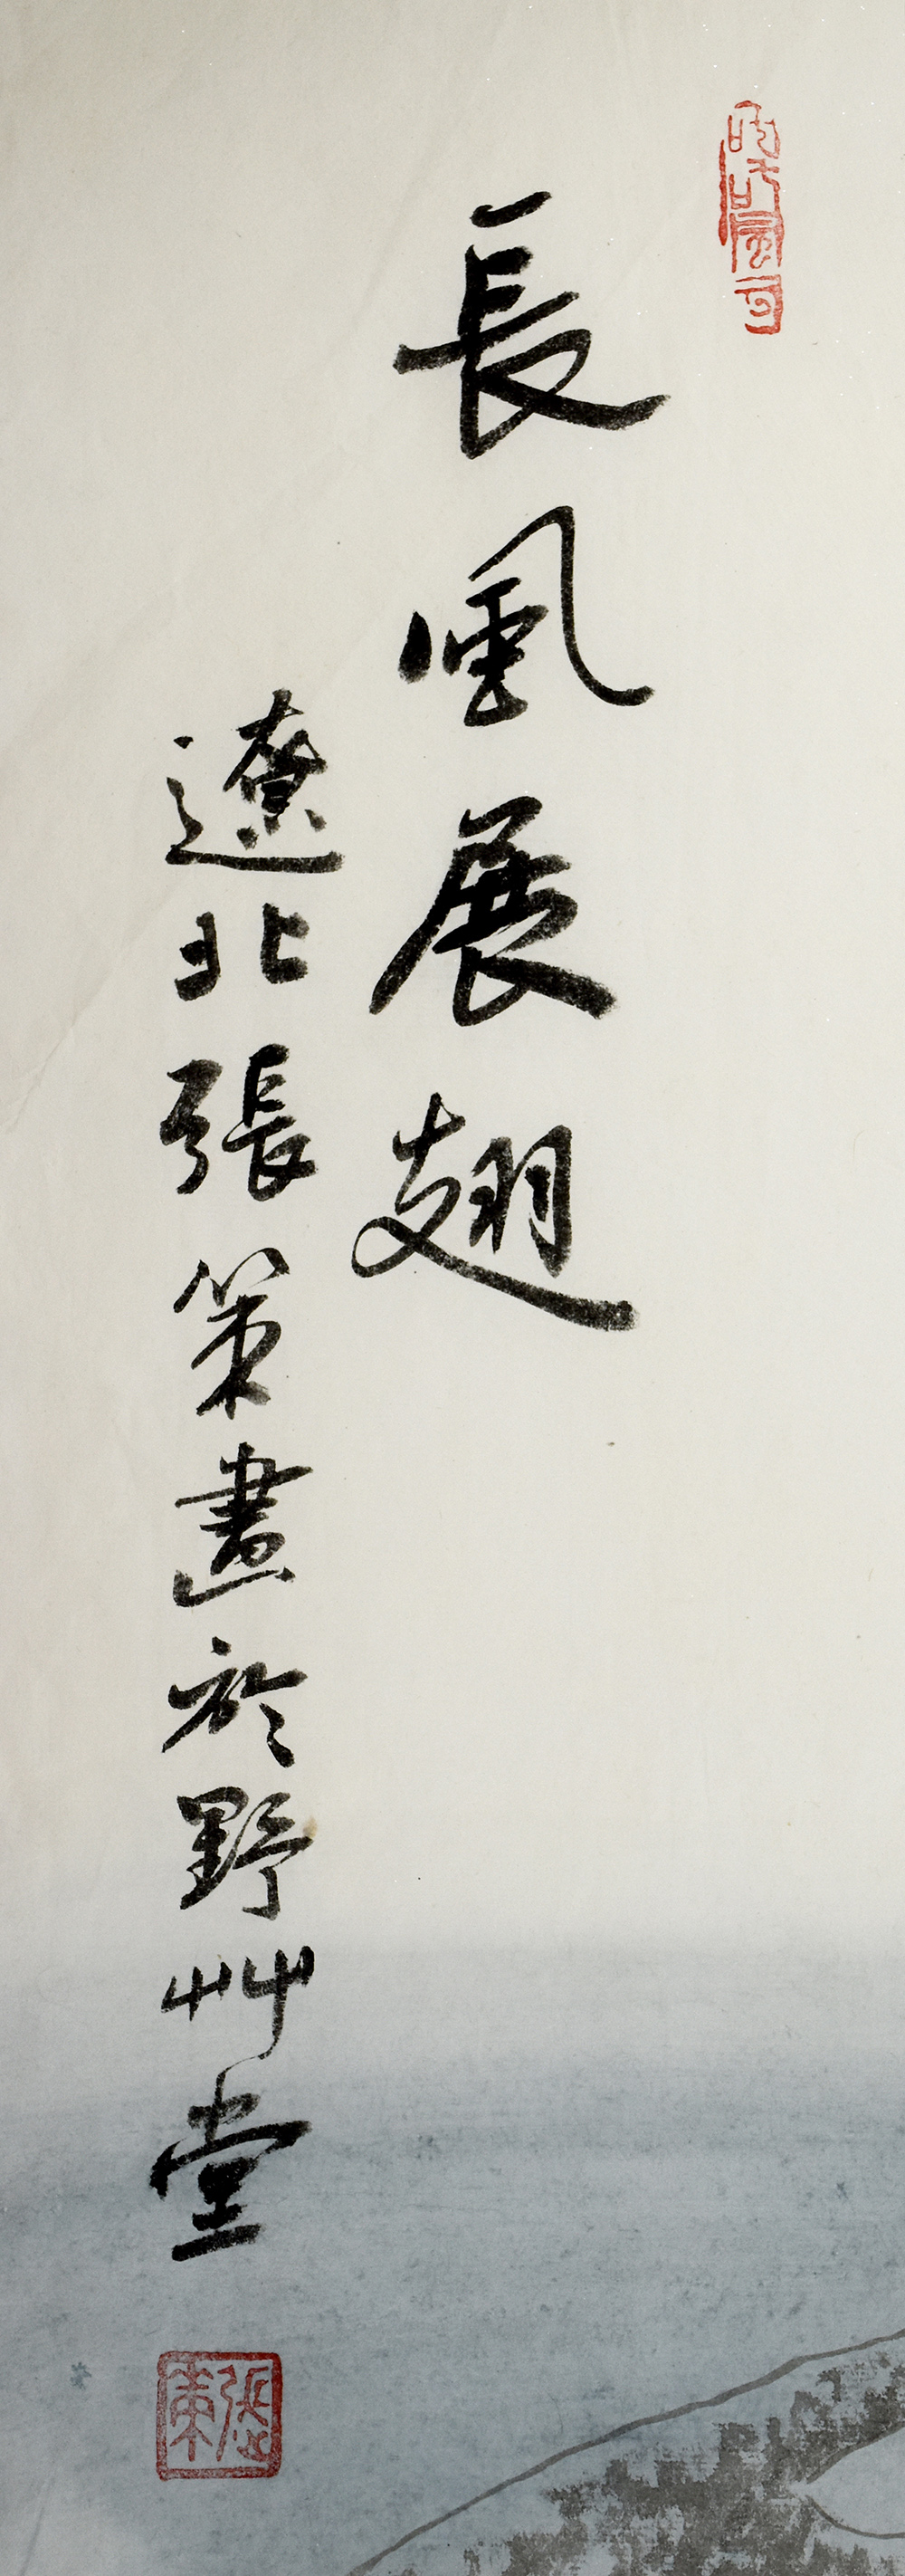 長風展翅
遼北張策畫於野艸堂